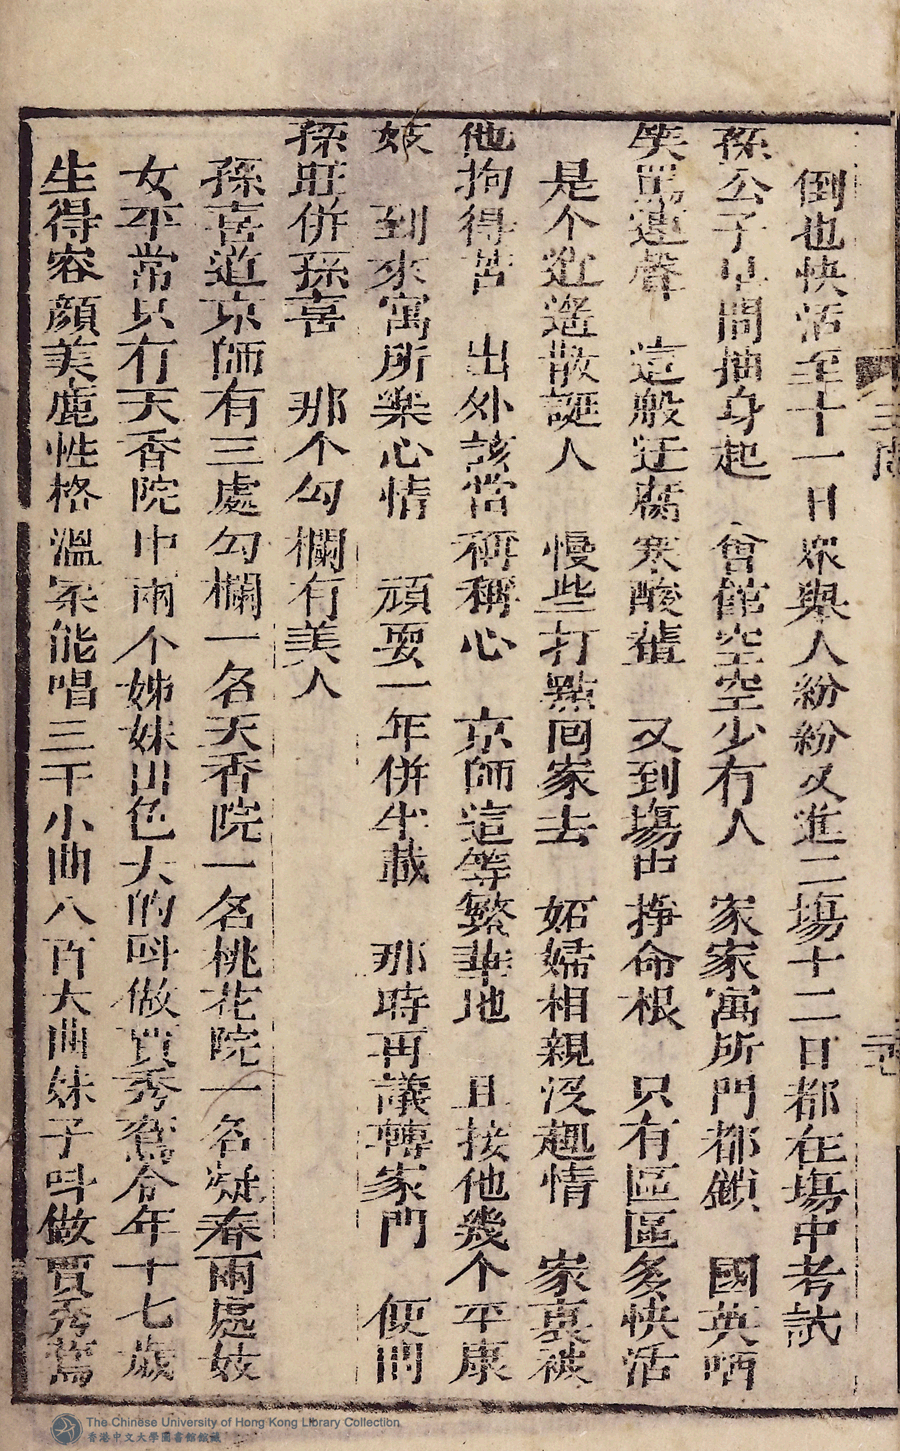 倒也快活至十一日衆與人紛紛又進二塲十二日都在塲中考試
孫公子早間抽身起 會館空空少有人 家家寓所門都鎖 國英哂
笑罵連聲 這般迂腐寒酸輩 又到塲中掙命根 只有區區多快活
是个逍遙散誕人 慢些打點囘家去 妬婦相親没趣情 家裏被
他拘得苦 出外該當稱稱心 京師這等繁華地 且接他幾个平康
妓 到來寓所樂心情 頑耍一年併半載 那時再議轉家門 便問
孫旺併孫喜 那个勾欄有美人
孫喜道京師有三處勾欄一名天香院一名桃花院一名疑春兩處妓
女平常只有天香院中兩个姊妹出色大的叫做賈秀鴛今年十七歲
生得容顔美麗性格溫柔能唱三千小曲八百大曲妹子叫做賈秀鶯
The Chinese University of Hong Kong Library Collection
香港中文大學圖書館館藏